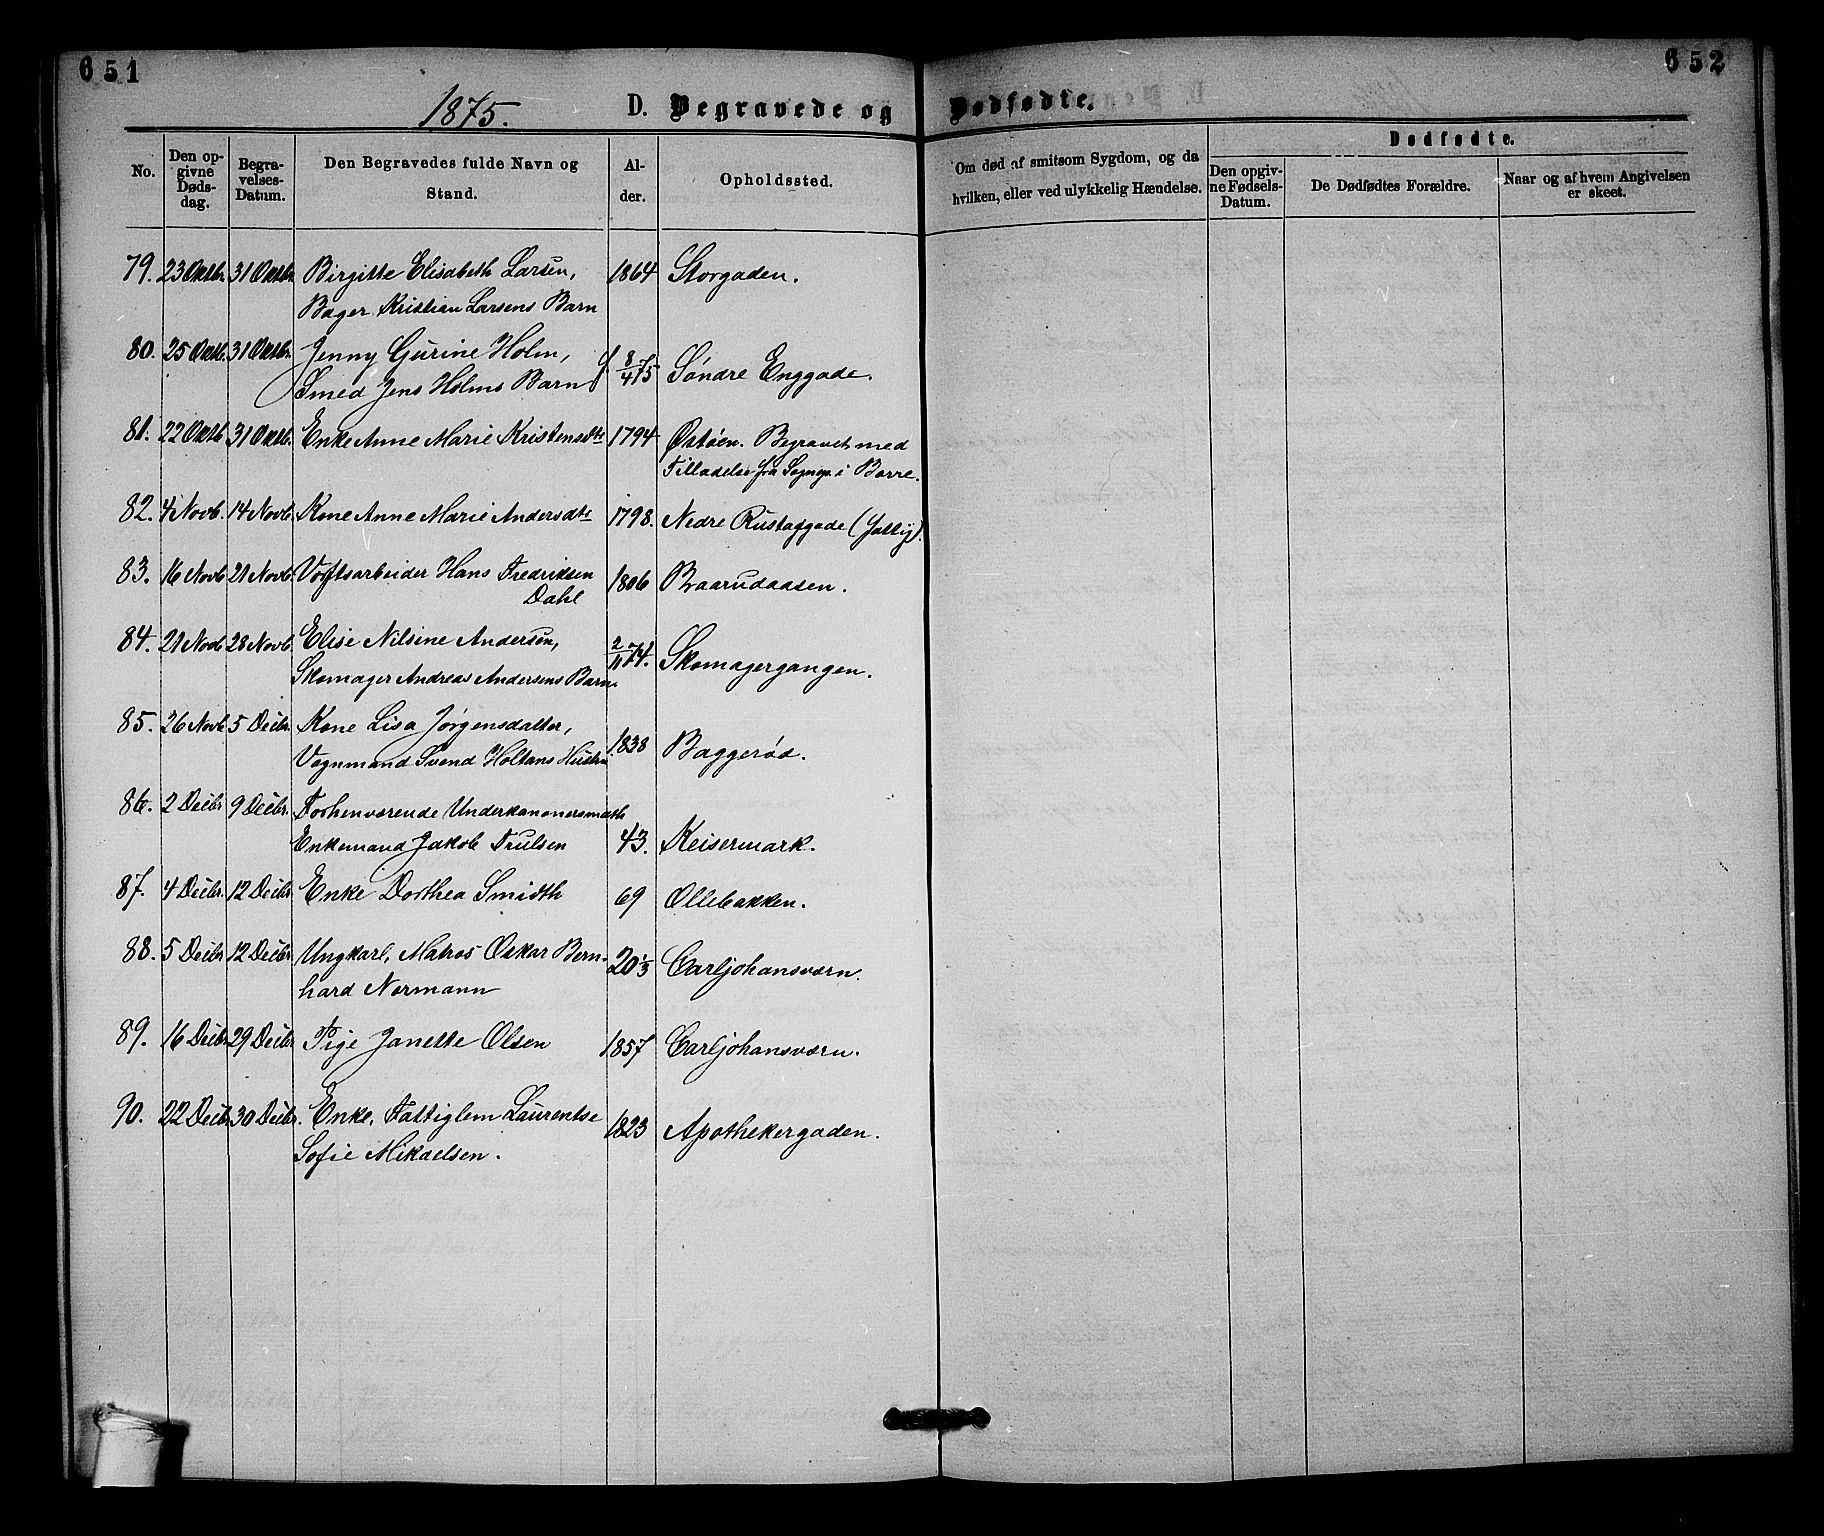 651
652
1875.
D. Begravede og Dødfødte.
No.
Den opgivne Dødsdag.
Begravelses-Datum.
Den Begravedes fulde Navn og Stand.
Alder.
Opholdssted.
Om død af smitsom Sygdom, og da hvilken, eller ved ulykkelig Hændelse.
Dødfødte.
Den opgivne Fødsels-Datum.
De Dødfødtes Forældre.
Naar og af hvem Angivelsen er skeet.
79. 23 Oktb. 31 Oktbr. Birgitte Elisabeth Larsen, 1864 Storgaden.
Bager Kristian Larsens Barn
80. 25 Oktb. 31 Oktbr. Jenny Gurine Holm, f 8/4 75 Søndre Enggade.
Smed Jens Holms Barn
81. 22 Oktb. 31 Oktb. Enke Anne Marie Kristensdtr 1794 Østøen. Begravet med
Tilladelse fra Sognep. i Borre.
82. 4 Novb. 14 Novb. Kone Anne Marie Andersdtr 1798. Nedre Rustaggade (Fattig).
83. 16 Novb 21 Novb. Værftsarbeider Hans Fredriksen 1806 Baarudaasen.
Dahl
84. 21 Novb 28 Novb. Elise Nilsine Andersen, 2/11 74. Skomagergangen.
Skomager Andreas Andersens Barn
85. 26 Novb 5 Decbr. Kone Lisa Jørgensdatter, 1838 Baggerød.
Vognmand Svend Holtans Hustru
86. 2 Decbr 9 Decbr. Forhenværende Underkanonersmath
Enkemand Jakob Trulsen 43. Keisermark.
87. 4 Decbr. 12 Decbr Enke Dorthea Smidth 69 Ollebakken.
88. 5 Decbr 12 Decbr Ungkarl, Matros Oskar Bern- 20 1/3 Carljohansværn.
hard Normann
89. 16 Decbr 29 Decbr Pige Janette Olsen 1857 Carljohansværn.
90. 22 Decbr 30 Decbr. Enke, Fattiglem Laurentse 1823 Apothekergaden.
Sofie Mikaelsen.